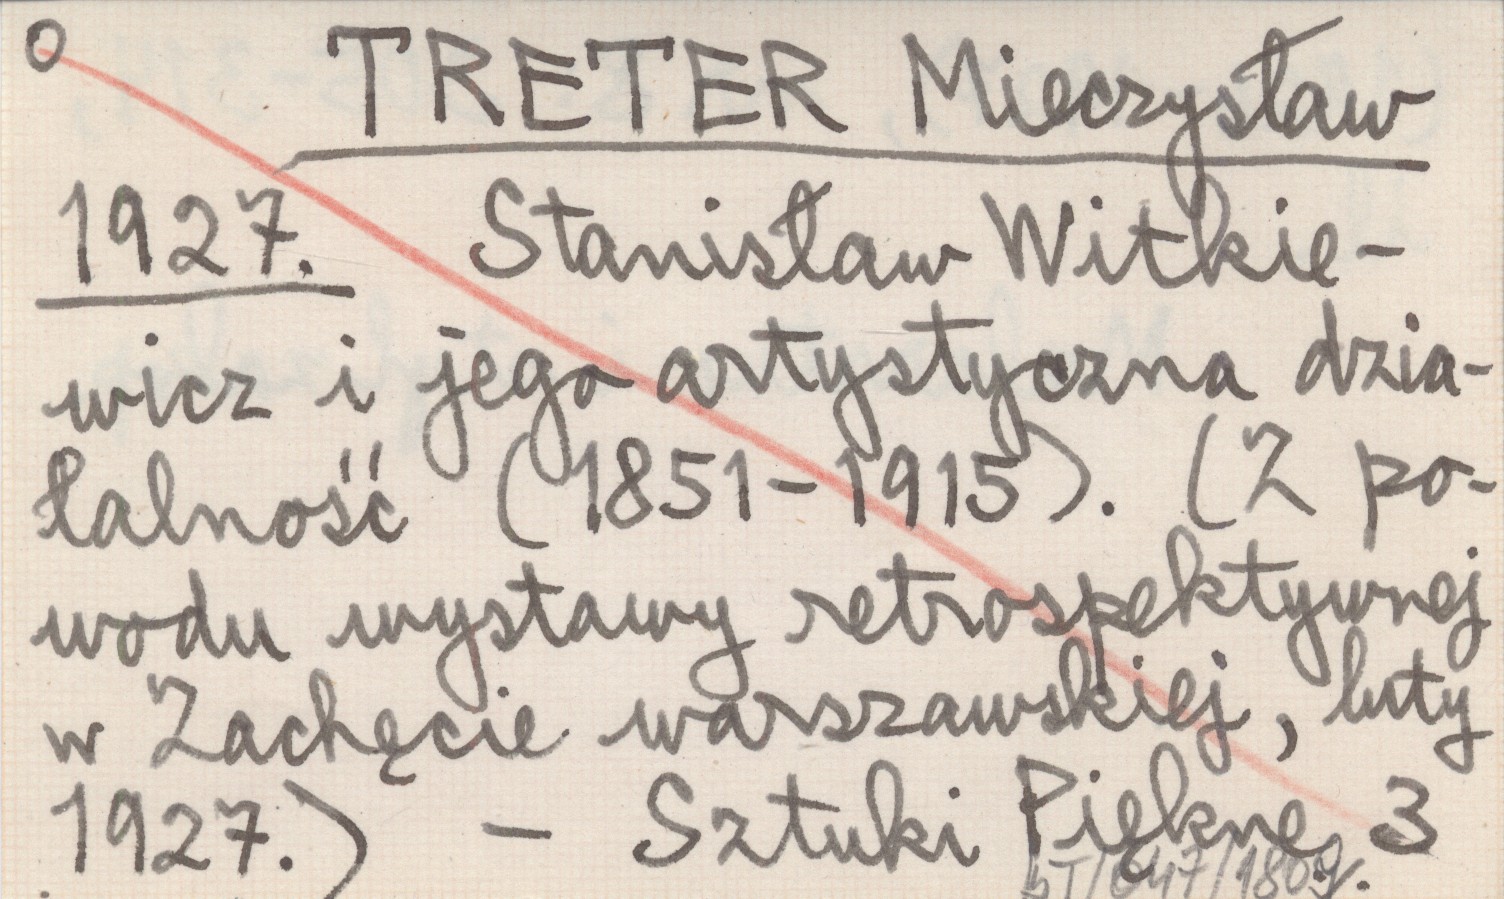 O TRETER Mieczysław
1927. Stanisław Witkie-
wicz i jego artystyczna dzia-
łalność (1851-1915). (Z po-
wodu wystawy retrospektywnej
w Zachęcie warszawskiej, luty
1927.) - Sztuki Piękne 3